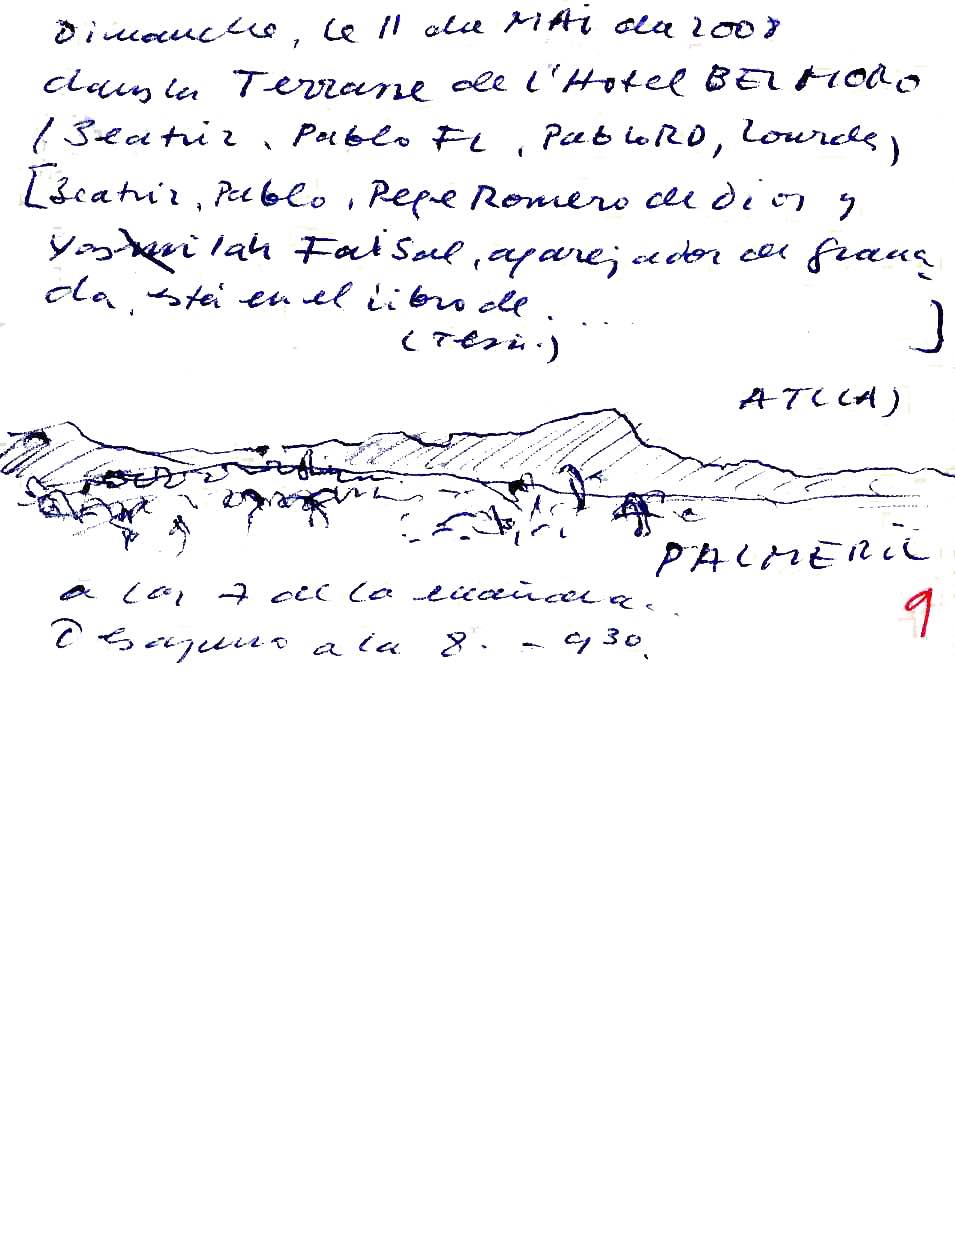 Dimanche, le 11 du MAI du 2008
dans la Terrasse de l'Hotel BEL MORO
(Beatriz, Pablo FL, PabloRD, Lourdes)
[Beatriz, Pablo, Pepe Romero de dios y
Faisal, aparejador de Grana
da, está en el Libro de . . . . ]
ATLAS
PALMERIE
a las 7 de la mañana.
Desayuno a la 8. - 930.
9